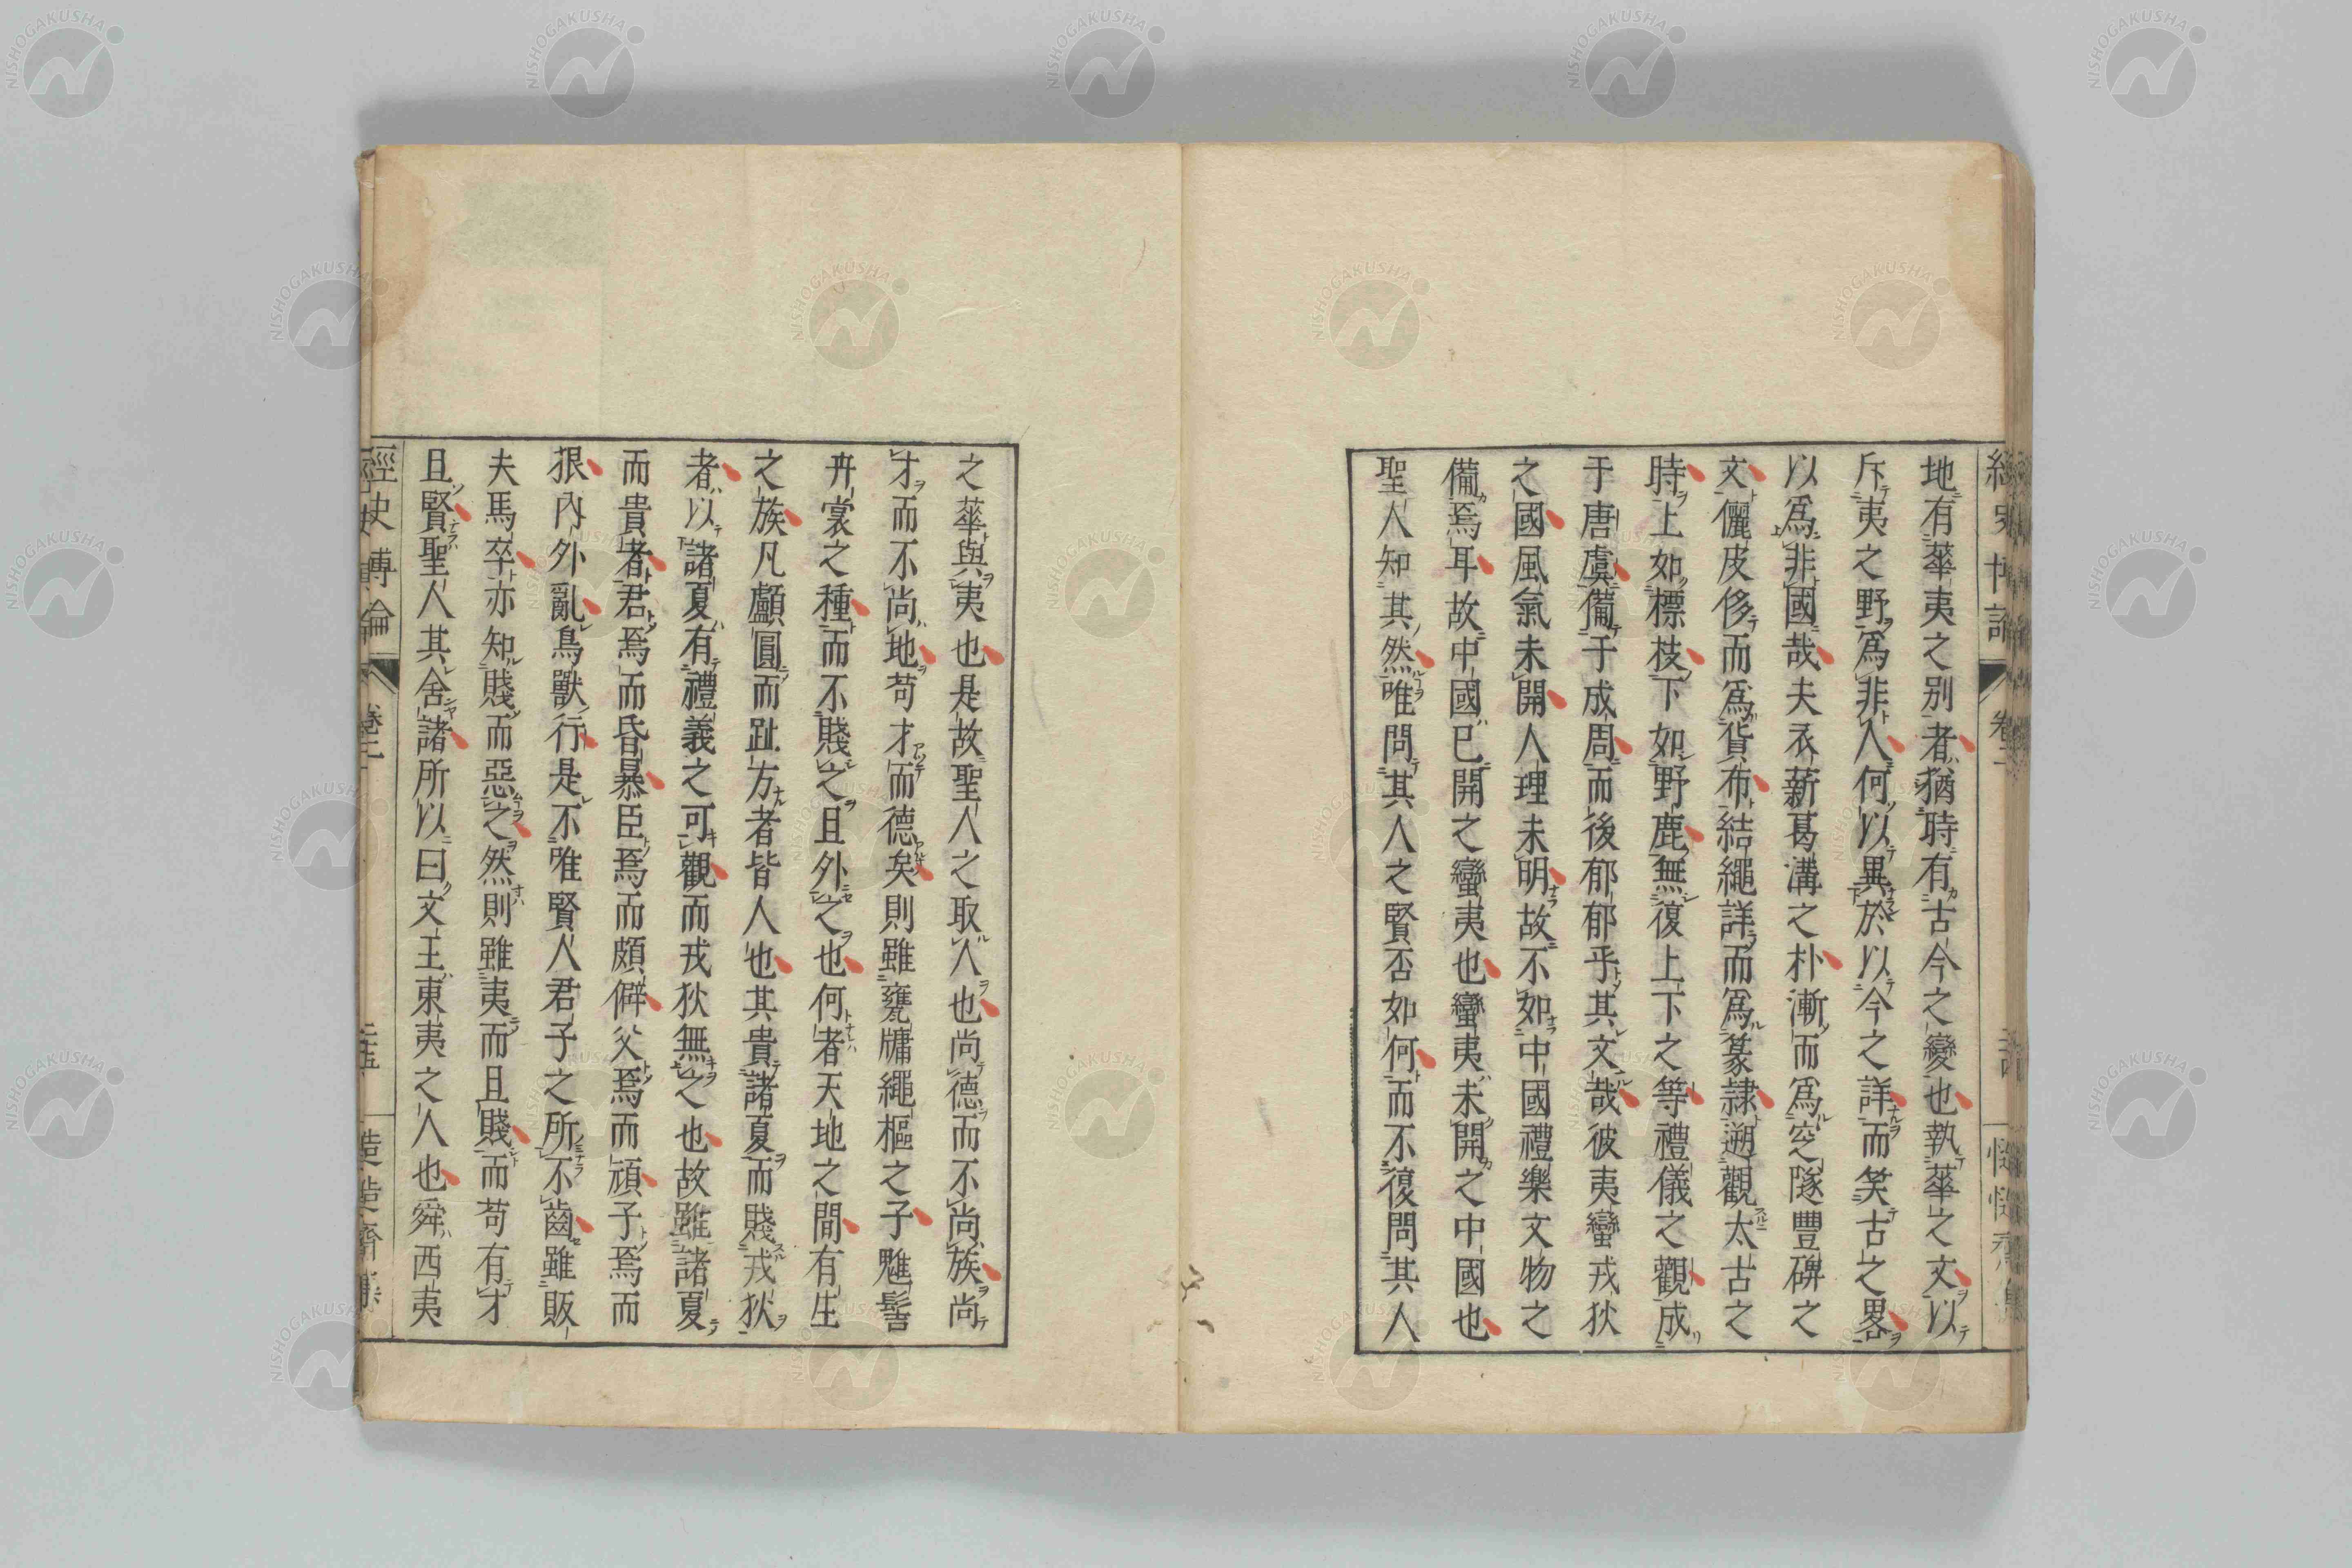 地有華夷之別者猶時有古今之變也執華之文以
斥夷之野爲非人何以異於以今之詳而笑古之畧
以爲非國哉夫衣薪葛溝之朴漸而爲窆隧豐碑之
文儷皮侈而爲貨布結繩詳而爲篆隷遡觀太古之
時上如標枝下如野鹿無復上下之等禮儀之觀成
于唐虞備于成周而後郁郁乎其文哉彼夷蠻戎狄
之國風氣未開人理未明故不如中國禮樂文物之
備焉耳故中國已開之蠻夷也蠻夷未開之中國也
聖人知其然唯問其人之賢否如何而不復問其人
之華與夷也是故聖人之取人也尚德而不尚族尚
才而不尚地苟才而德矣則雖甕牖繩樞之子魋髻
卉裳之種而不賤之且外之也何者天地之間有生
之族凡顱圓而趾方者皆人也其貴諸夏而賤戎狄
者以諸夏有禮義之可觀而戎狄無之也故雖諸夏
而貴者君焉而昏暴臣焉而頗僻父焉而頑子焉而
狠內外亂鳥獸行是不唯賢人君子之所不齒雖販
夫馬卒亦知賤而惡之然則雖夷而且賤而苟有才
且賢聖人其舍諸所以曰文王東夷之人也舜西夷
經史博論
卷二